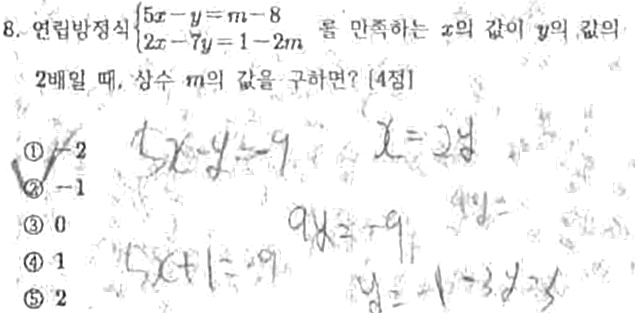 8. 연립방정식 { 5x-y=m-8
2x-7y=1-2m 를 만족하는 x의 값이 y의 값의
2배일 때, 상수 m의 값을 구하면? [4점]
① -2
② -1
③ 0
④ 1
⑤ 2
5x-y=-9
x=2y
9y=-9
9y=
5x+1=-9
y=-1